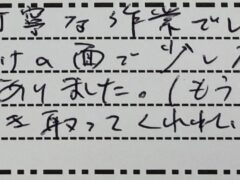 寧な作業でし
けの面で少し
ありました。(もう
き取ってくれれ